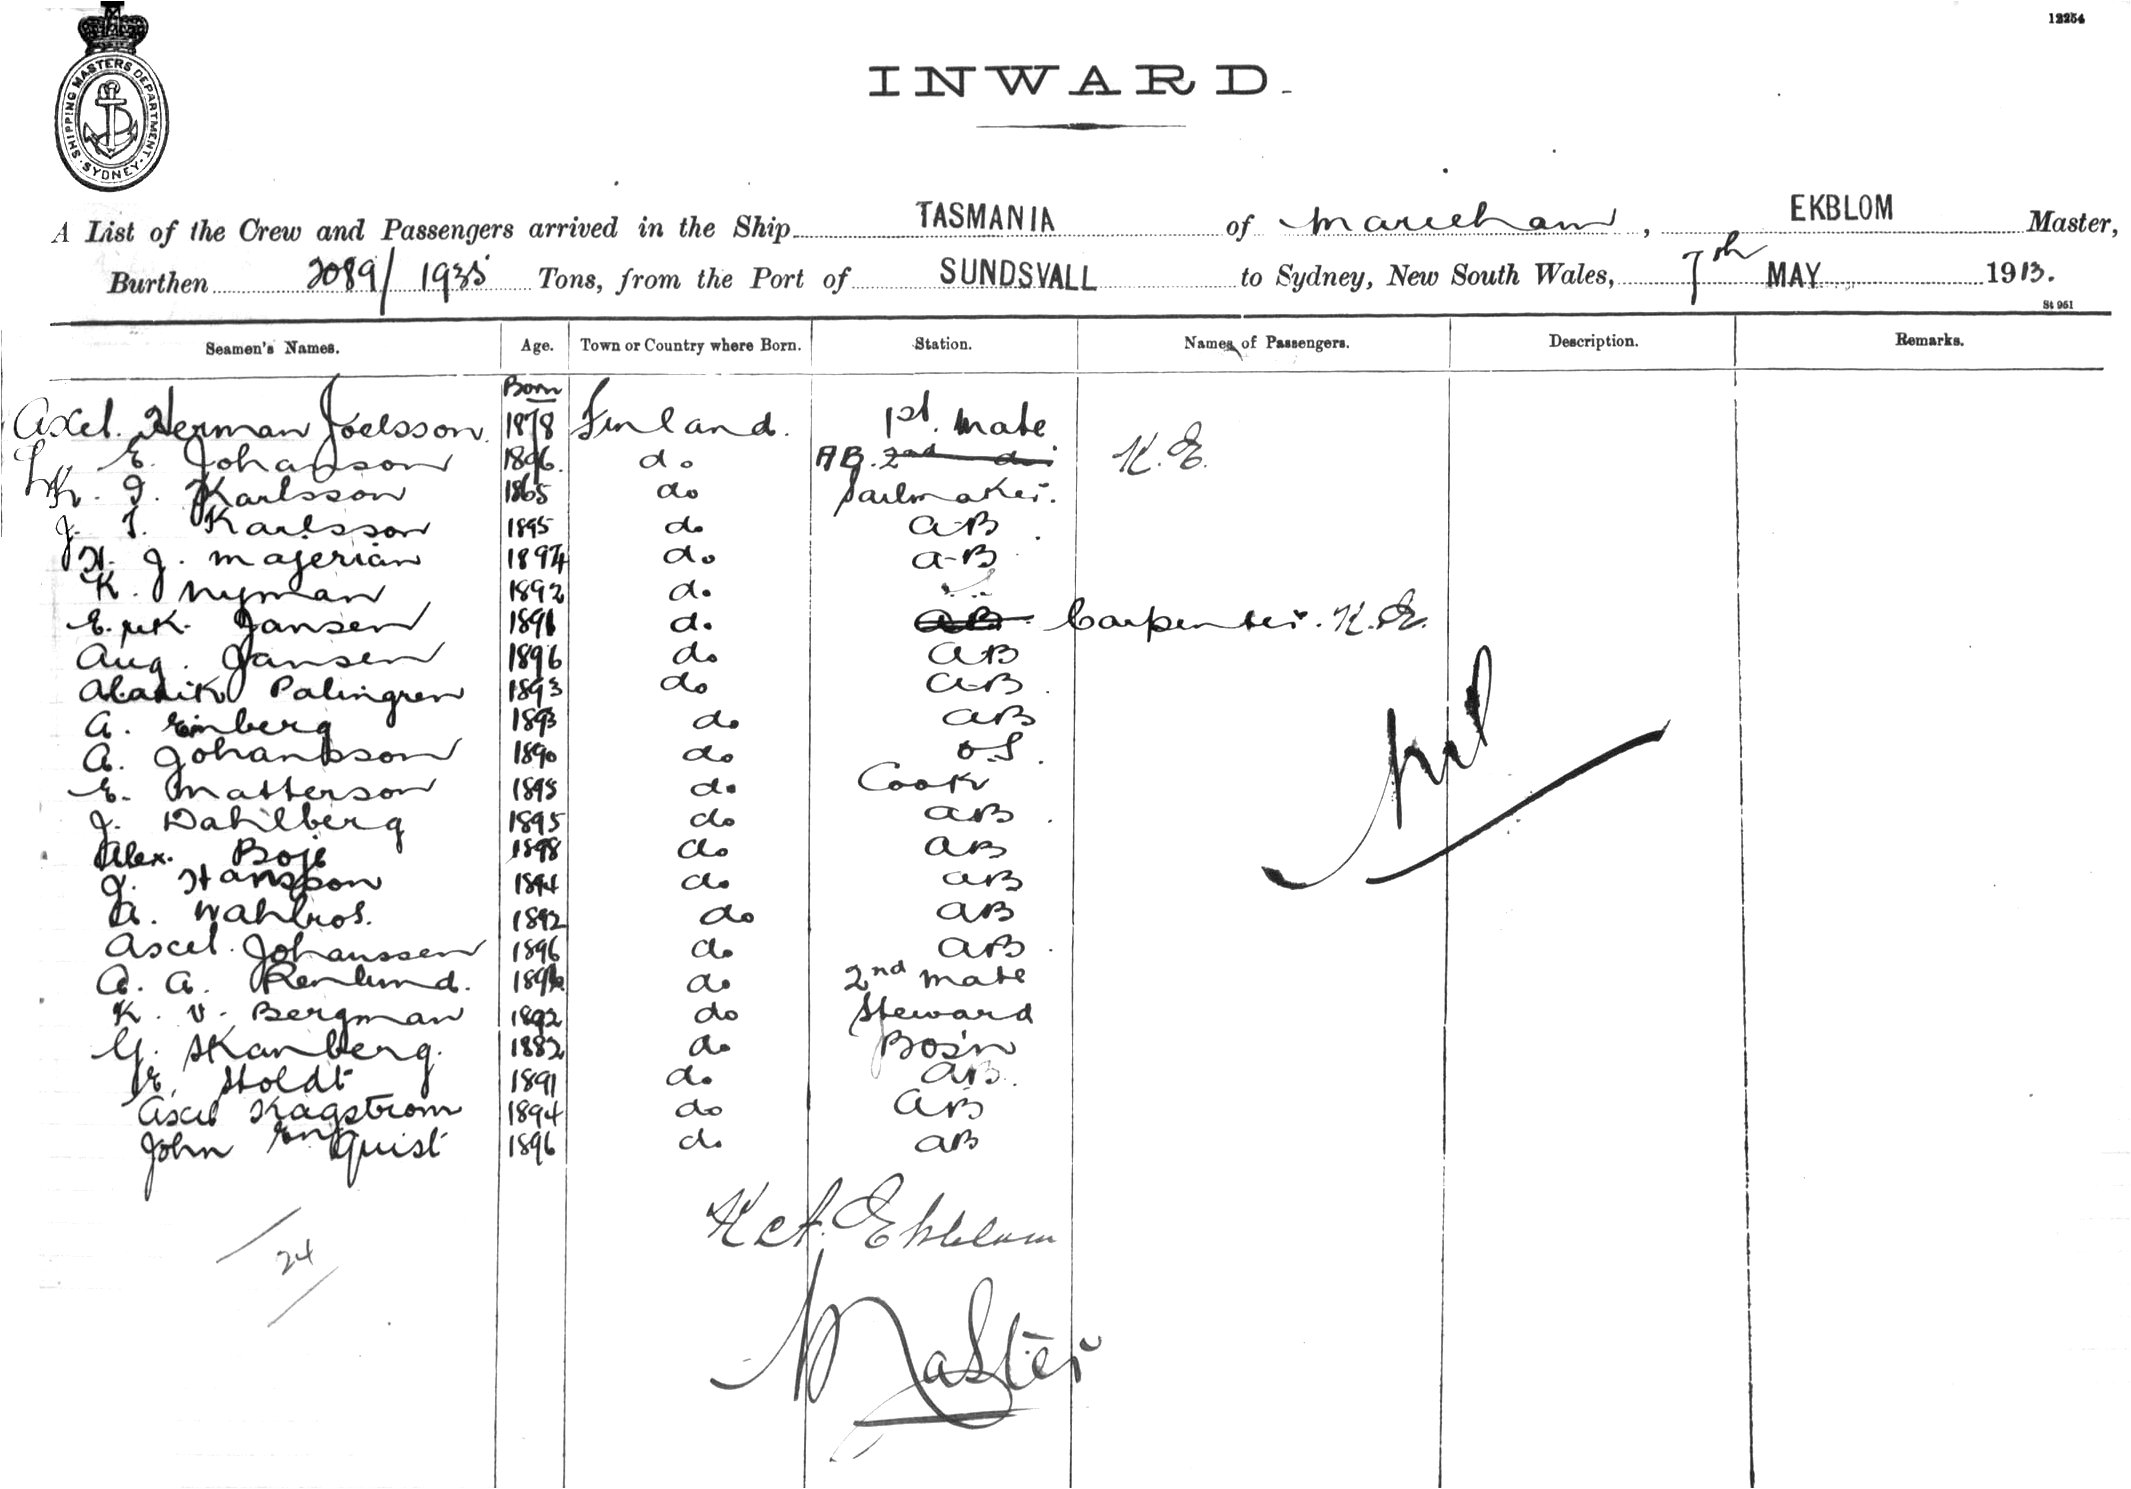 12254
SHIPPING MASTERS DEPARTMENT
SYDNEY
INWARD.
A List of the Crew and Passengers arrived in the Ship TASMANIA of Marieham, EKBLOM Master,
Burthen 2089/1935 Tons, from the Port of SUNDSVALL to Sydney, New South Wales, 7th MAY 1913.
St 951
Seamen's Names. Age. Town or Country where Born. Station. Names of Passengers. Description. Remarks.
Born
Axel. Herman Joelsson. 1878 Finland. 1st. Mate
E. Johansson 1896. do A B. 2nd do K. E.
K. I. Karlsson 1865 do Sailmaker.
J. I. Karlsson 1895 do A-B
H. J. Majerian 1894 do A-B
K. Nyman 1892 do
Jansen 1891 do AB Carpenter. K. E.
Aug. Jansen 1896 do AB
Alarik Palingren 1893 do A-B
A. Einberg 1893 do AB
A. Johansson 1890 do O.S.
E. Matterson 1895 do Cook
J. Dahlberg 1895 do AB
Alex. Boje 1898 do AB
J. Hansson 1894 do AB
A. Wahlros. 1892 do AB
Axel. Johanssen 1896 do AB
A. A. Renlund. 1896 do 2nd Mate
K. V. Bergman 1892 do Steward
G. Skanberg. 1882 do Bos'n
E. Holdt 1891 do AB.
Axel Kagstrom 1894 do AB
John Enquist 1896 do AB
Nil
K A. Ekblom
24
Master